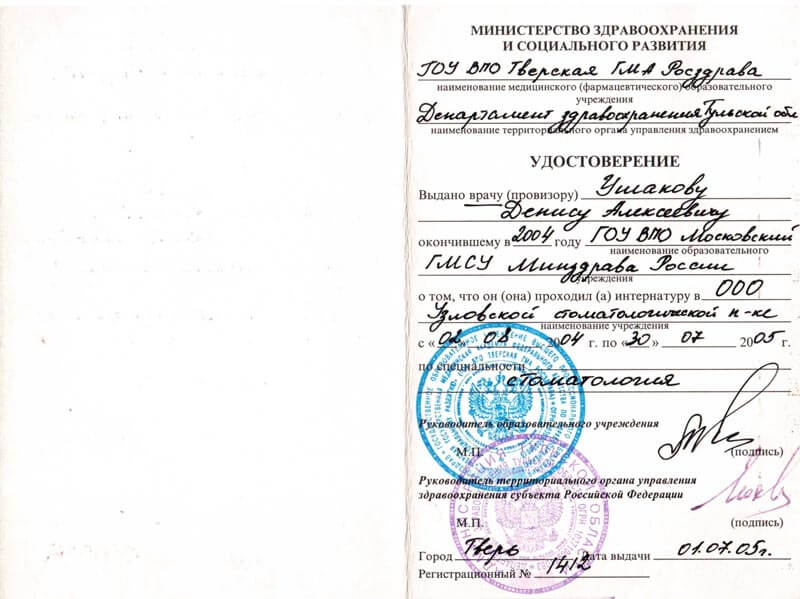 МИНИСТЕРСТВО ЗДРАВООХРАНЕНИЯ
И СОЦИАЛЬНОГО РАЗВИТИЯ
ГОУ ВПО Тверская ГМА Росздрава
наименование медицинского (фармацевтического) образовательного
учреждения
Департамент здравоохранения Тульской обл
наименование территориального органа управления здравоохранением
УДОСТОВЕРЕНИЕ
Выдано врачу (провизору) Ушакову
Денису Алексеевичу
окончившему в 2004 году ГОУ ВПО Московский
наименование образовательного
ГМСУ Минздрава России
учреждения
о том, что он (она) проходил (а) интернатуру в ООО
Узловской стоматологической п-ке
наименование учреждения
с «02» 08 2004 г. по «30» 07 2005 г.
по специальности
стоматология
Руководитель образовательного учреждения
М.П. (подпись)
Руководитель территориального органа управления
здравоохранения субъекта Российской Федерации
М.П. (подпись)
Город Тверь Дата выдачи 01.07.05г.
Регистрационный № 1412